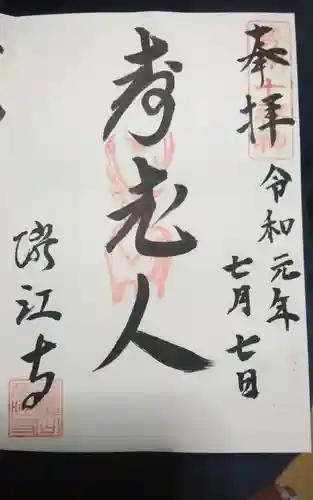 奉拝
令和元年
七月七日
寿老人
江寺